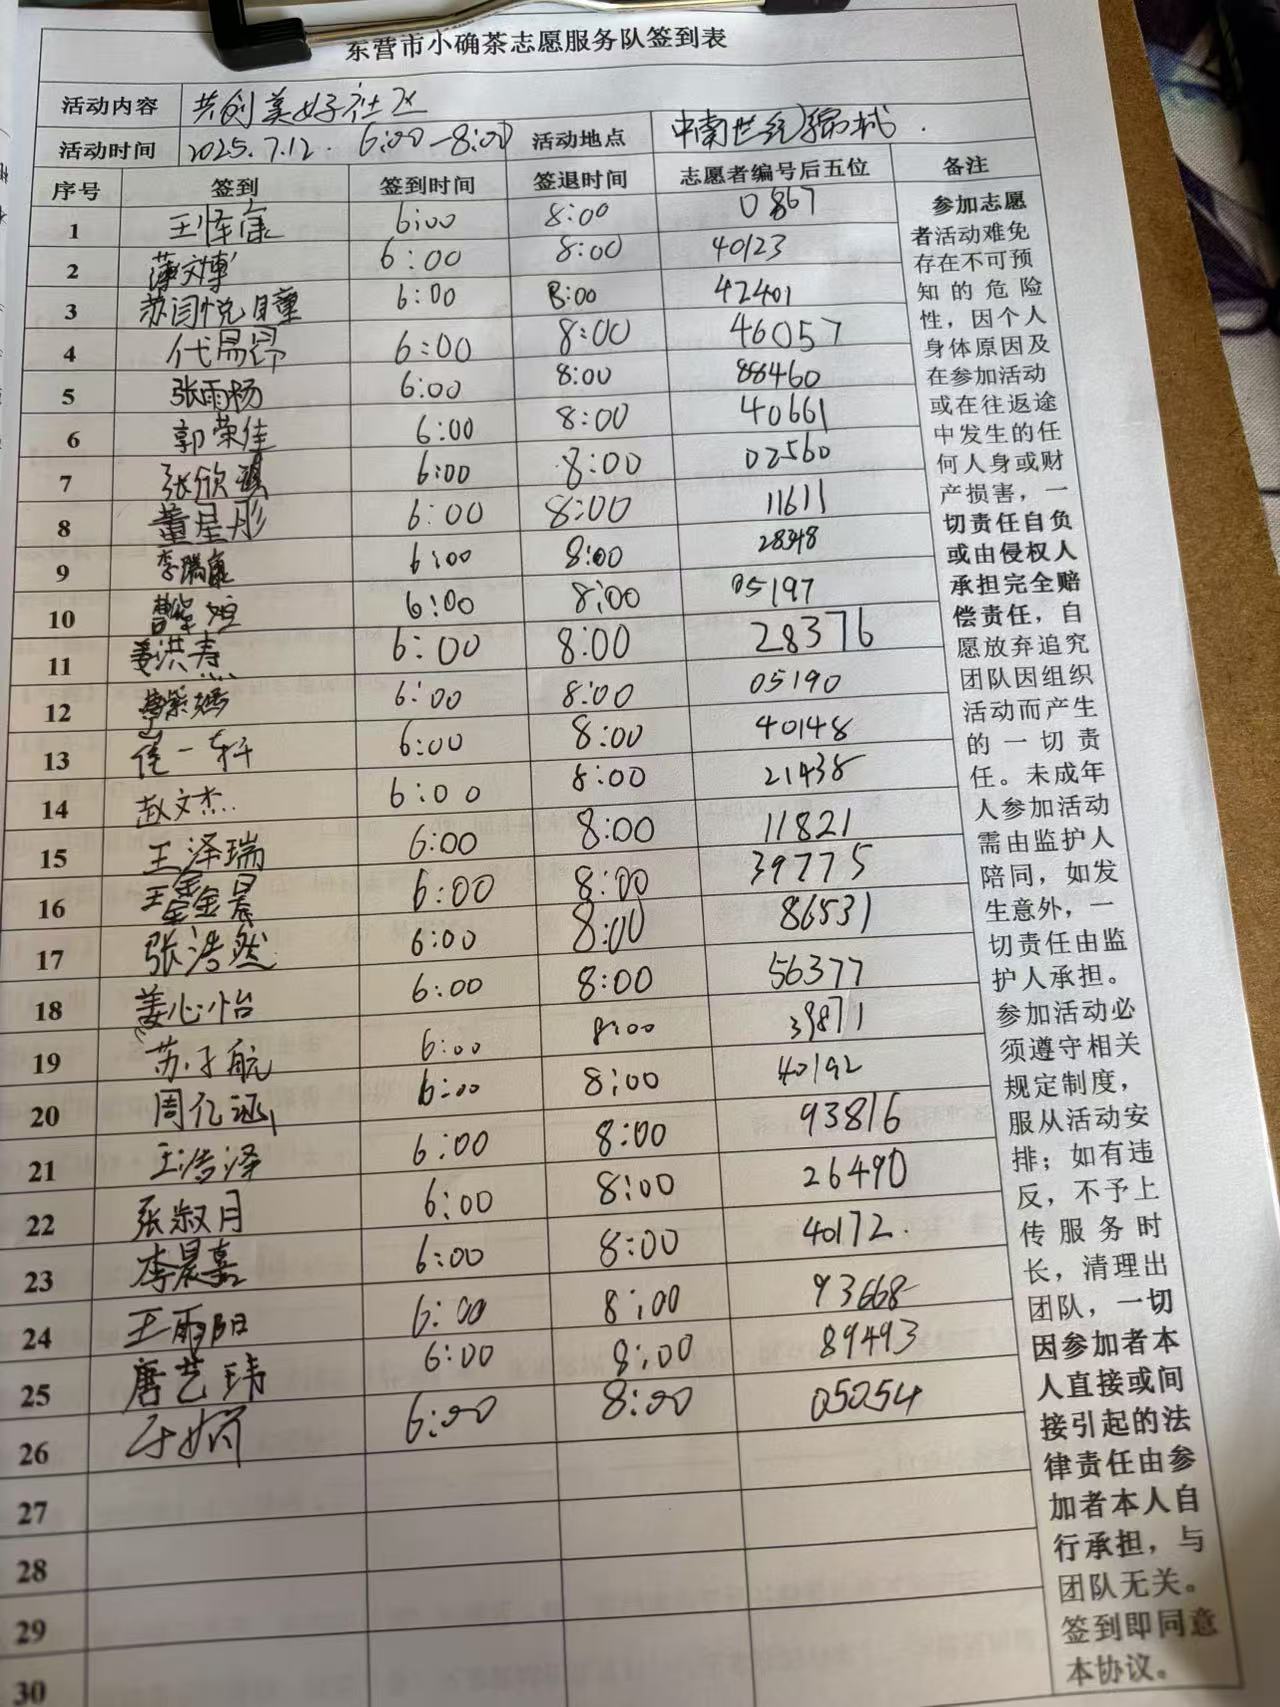 东营市小确茶志愿服务队签到表
活动内容 共创美好社区
活动时间 2025.7.12. 6:00-8:00 活动地点 中南世纪锦城.
序号 签到 签到时间 签退时间 志愿者编号后五位 备注
1 王怿康 6:00 8:00 0867
2 薄文博 6:00 8:00 40123
3 苏闫悦瞳 6:00 8:00 42401
4 代昺昂 6:00 8:00 46057
5 张雨杨 6:00 8:00 88460
6 郭荣佳 6:00 8:00 40661
7 张欣 6:00 8:00 02560
8 董星彤 6:00 8:00 11611
9 李瑞康 6:00 8:00 28348
10 6:00 8:00 05197
11 姜洪焘 6:00 8:00 28376
12 6:00 8:00 05190
13 一轩 6:00 8:00 40148
14 赵文杰 6:00 8:00 21438
15 王泽瑞 6:00 8:00 11821
16 王鑫晨 6:00 8:00 39775
17 张浩然 6:00 8:00 86531
18 姜心怡 6:00 8:00 56377
19 苏子航 6:00 8:00 39871
20 周亿涵 6:00 8:00 40192
21 王浩泽 6:00 8:00 93816
22 张淑月 6:00 8:00 26490
23 李晨嘉 6:00 8:00 40172.
24 王雨阳 6:00 8:00 93668
25 唐艺玮 6:00 8:00 89493
26 6:00 8:00 05054
27
28
29
30
参加志愿
者活动难免
存在不可预
知的危险
性，因个人
身体原因及
在参加活动
或在往返途
中发生的任
何人身或财
产损害，一
切责任自负
或由侵权人
承担完全赔
偿责任，自
愿放弃追究
团队因组织
活动而产生
的一切责
任。未成年
人参加活动
需由监护人
陪同，如发
生意外，一
切责任由监
护人承担。
参加活动必
须遵守相关
规定制度，
服从活动安
排；如有违
反，不予上
传服务时
长，清理出
团队，一切
因参加者本
人直接或间
接引起的法
律责任由参
加者本人自
行承担，与
团队无关。
签到即同意
本协议。